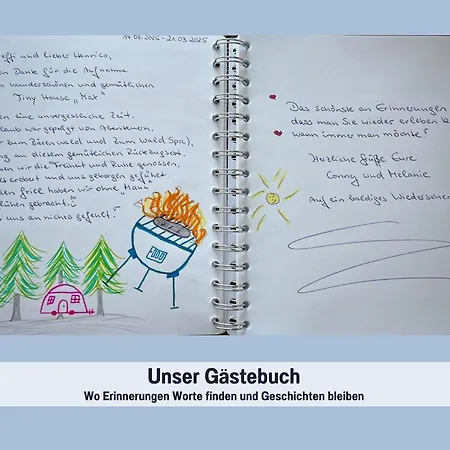 14.03.2025 - 21.03.2025
effi und lieber Henrico,
en Dank für die Aufnahme
n wunderschönen und gemütlichen
Tiny House „Max"
en eine unvergessliche Zeit.
laub war geprägt von Abenteuern,
g zum Bärenwald und zum Wald Spa),
g an diesem gemütlichen Rückzugsort.
en wir die Freiheit und Ruhe genossen,
es erdest und uns geborgen gefühlt.
den Grill haben wir ohne „Mann"
Glühen gebracht
uns an nichts gefehlt!
FOOD
Das schönste an Erinnerungen
dass man Sie wieder erleben k
wann immer man möchte!
Herzliche Grüße Eure
Conny und Melanie
Auf ein baldiges Wiedersehen
Unser Gästebuch
Wo Erinnerungen Worte finden und Geschichten bleiben